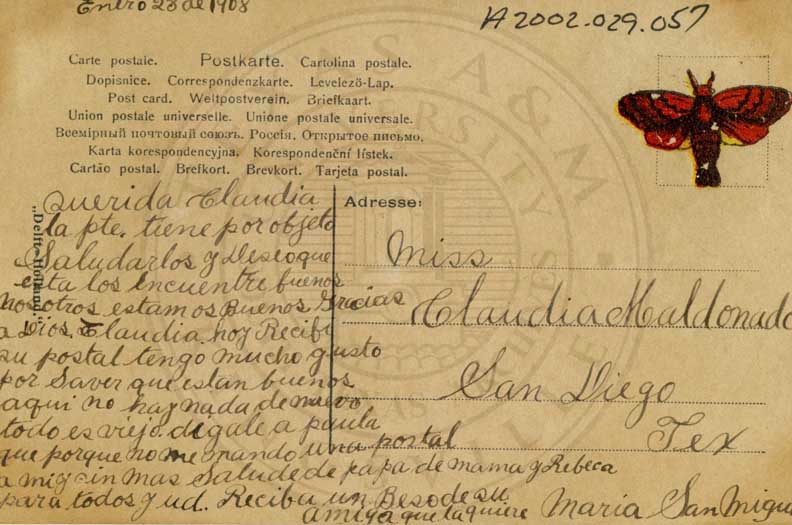 Enero 23 de 1908
A2002.029.057
Carte postale. Postkarte. Cartolina postale.
Dopisnice. Correspondenzkarte. Levelező-Lap.
Post card. Weltpostverein. Briefkaart.
Union postale universelle. Unione postale universale.
Всемірный почтовый союзъ. Россія. Открытое письмо.
Karta korespondencyjna. Korespondenční lístek.
Cartão postal. Brefkort. Brevkort. Tarjeta postal.
Querida Claudia
la pte. tiene por objeto
Saludarlos y Deseo que
esta los encuentre buenos
nosotros estamos Buenos Gracias
a Dios. Claudia hoy Recibi
su postal tengo mucho gusto
por Saver que estan buenos
aqui no hay nada de nuevo
todo es viejo. digale a paula
que porque no me mando una postal
a mi sin mas Salude de papa de mama y Rebeca
para todos y ud. Reciba un Beso de su
amiga que la quiere Maria San Migu
Adresse:
Miss
Claudia Maldonado
San Diego
Tex
„Delft" Holland